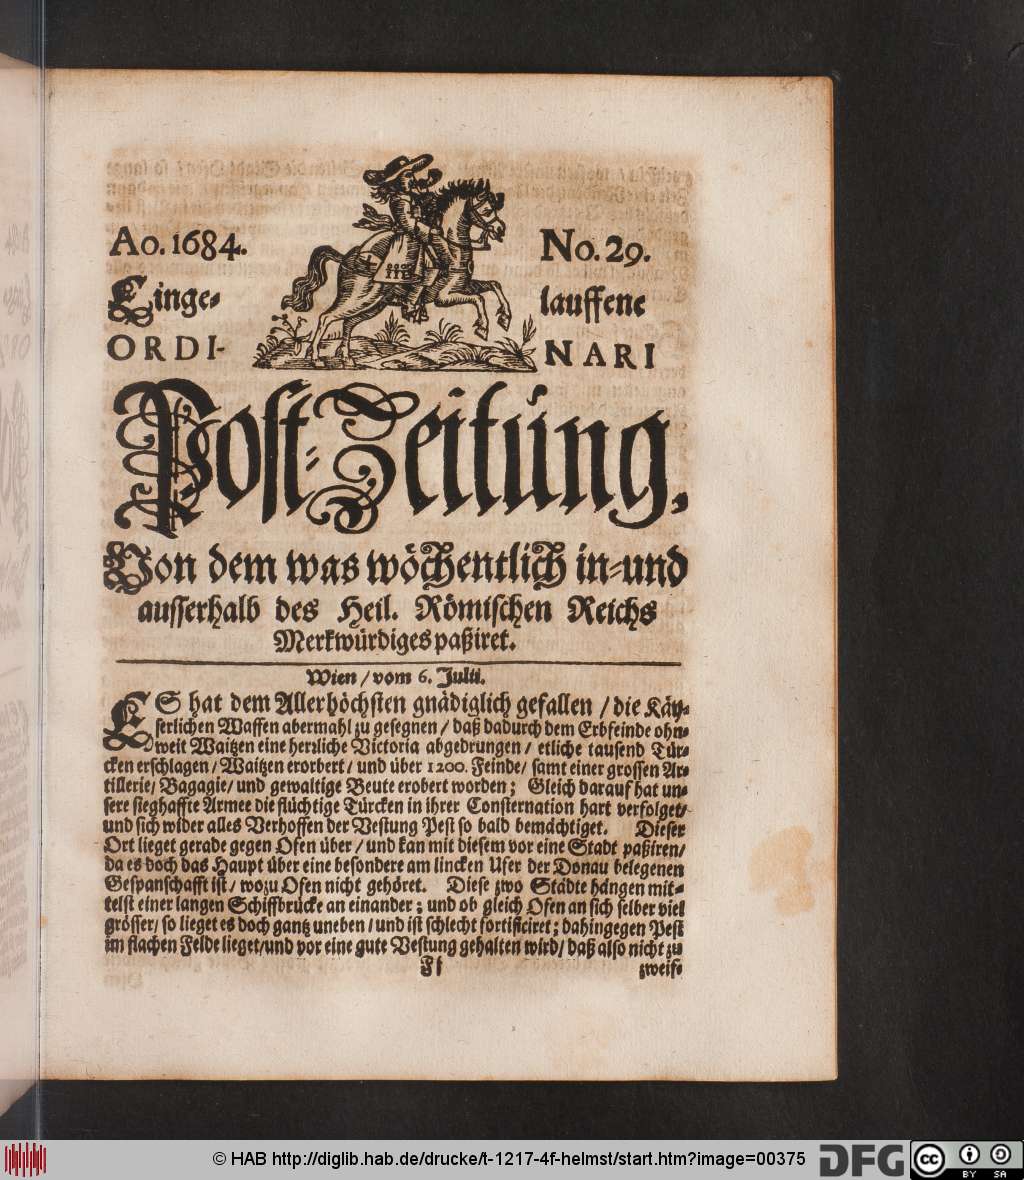 Ao. 1684. No. 29.
Einge- lauffene
ORDI- NARI
Post-Zeitung,
Von dem was wöchentlich in-und
ausserhalb des Heil. Römischen Reichs
Merkwürdiges paßiret.
Wien / vom 6. Julii.
ES hat dem Allerhöchsten gnädiglich gefallen / die Käy-
serlichen Waffen abermahl zu gesegnen / daß dadurch dem Erbfeinde ohn-
weit Waitzen eine herzliche Victoria abgedrungen / etliche tausend Tür-
cken erschlagen / Waitzen erorbert / und über 1200. Feinde / samt einer grossen Ar-
tillerie / Bagagie / und gewaltige Beute erobert worden; Gleich darauf hat un-
sere sieghaffte Armee die flüchtige Türcken in ihrer Consternation hart verfolget /
und sich wider alles Verhoffen der Vestung Pest so bald bemächtiget. Dieser
Ort lieget gerade gegen Ofen über / und kan mit diesem vor eine Stadt paßiren /
da es doch das Haupt über eine besondere am lincken Ufer der Donau belegenen
Gespanschafft ist / wozu Ofen nicht gehöret. Diese zwo Städte hängen mit-
telst einer langen Schiffbrücke an einander; und ob gleich Ofen an sich selber viel
grösser / so lieget es doch gantz uneben / und ist schlecht fortificiret; dahingegen Pest
im flachen Felde lieget / und vor eine gute Vestung gehalten wird / daß also nicht zu
Ff zweif-
© HAB http://diglib.hab.de/drucke/t-1217-4f-helmst/start.htm?image=00375
DFG
cc BY SA